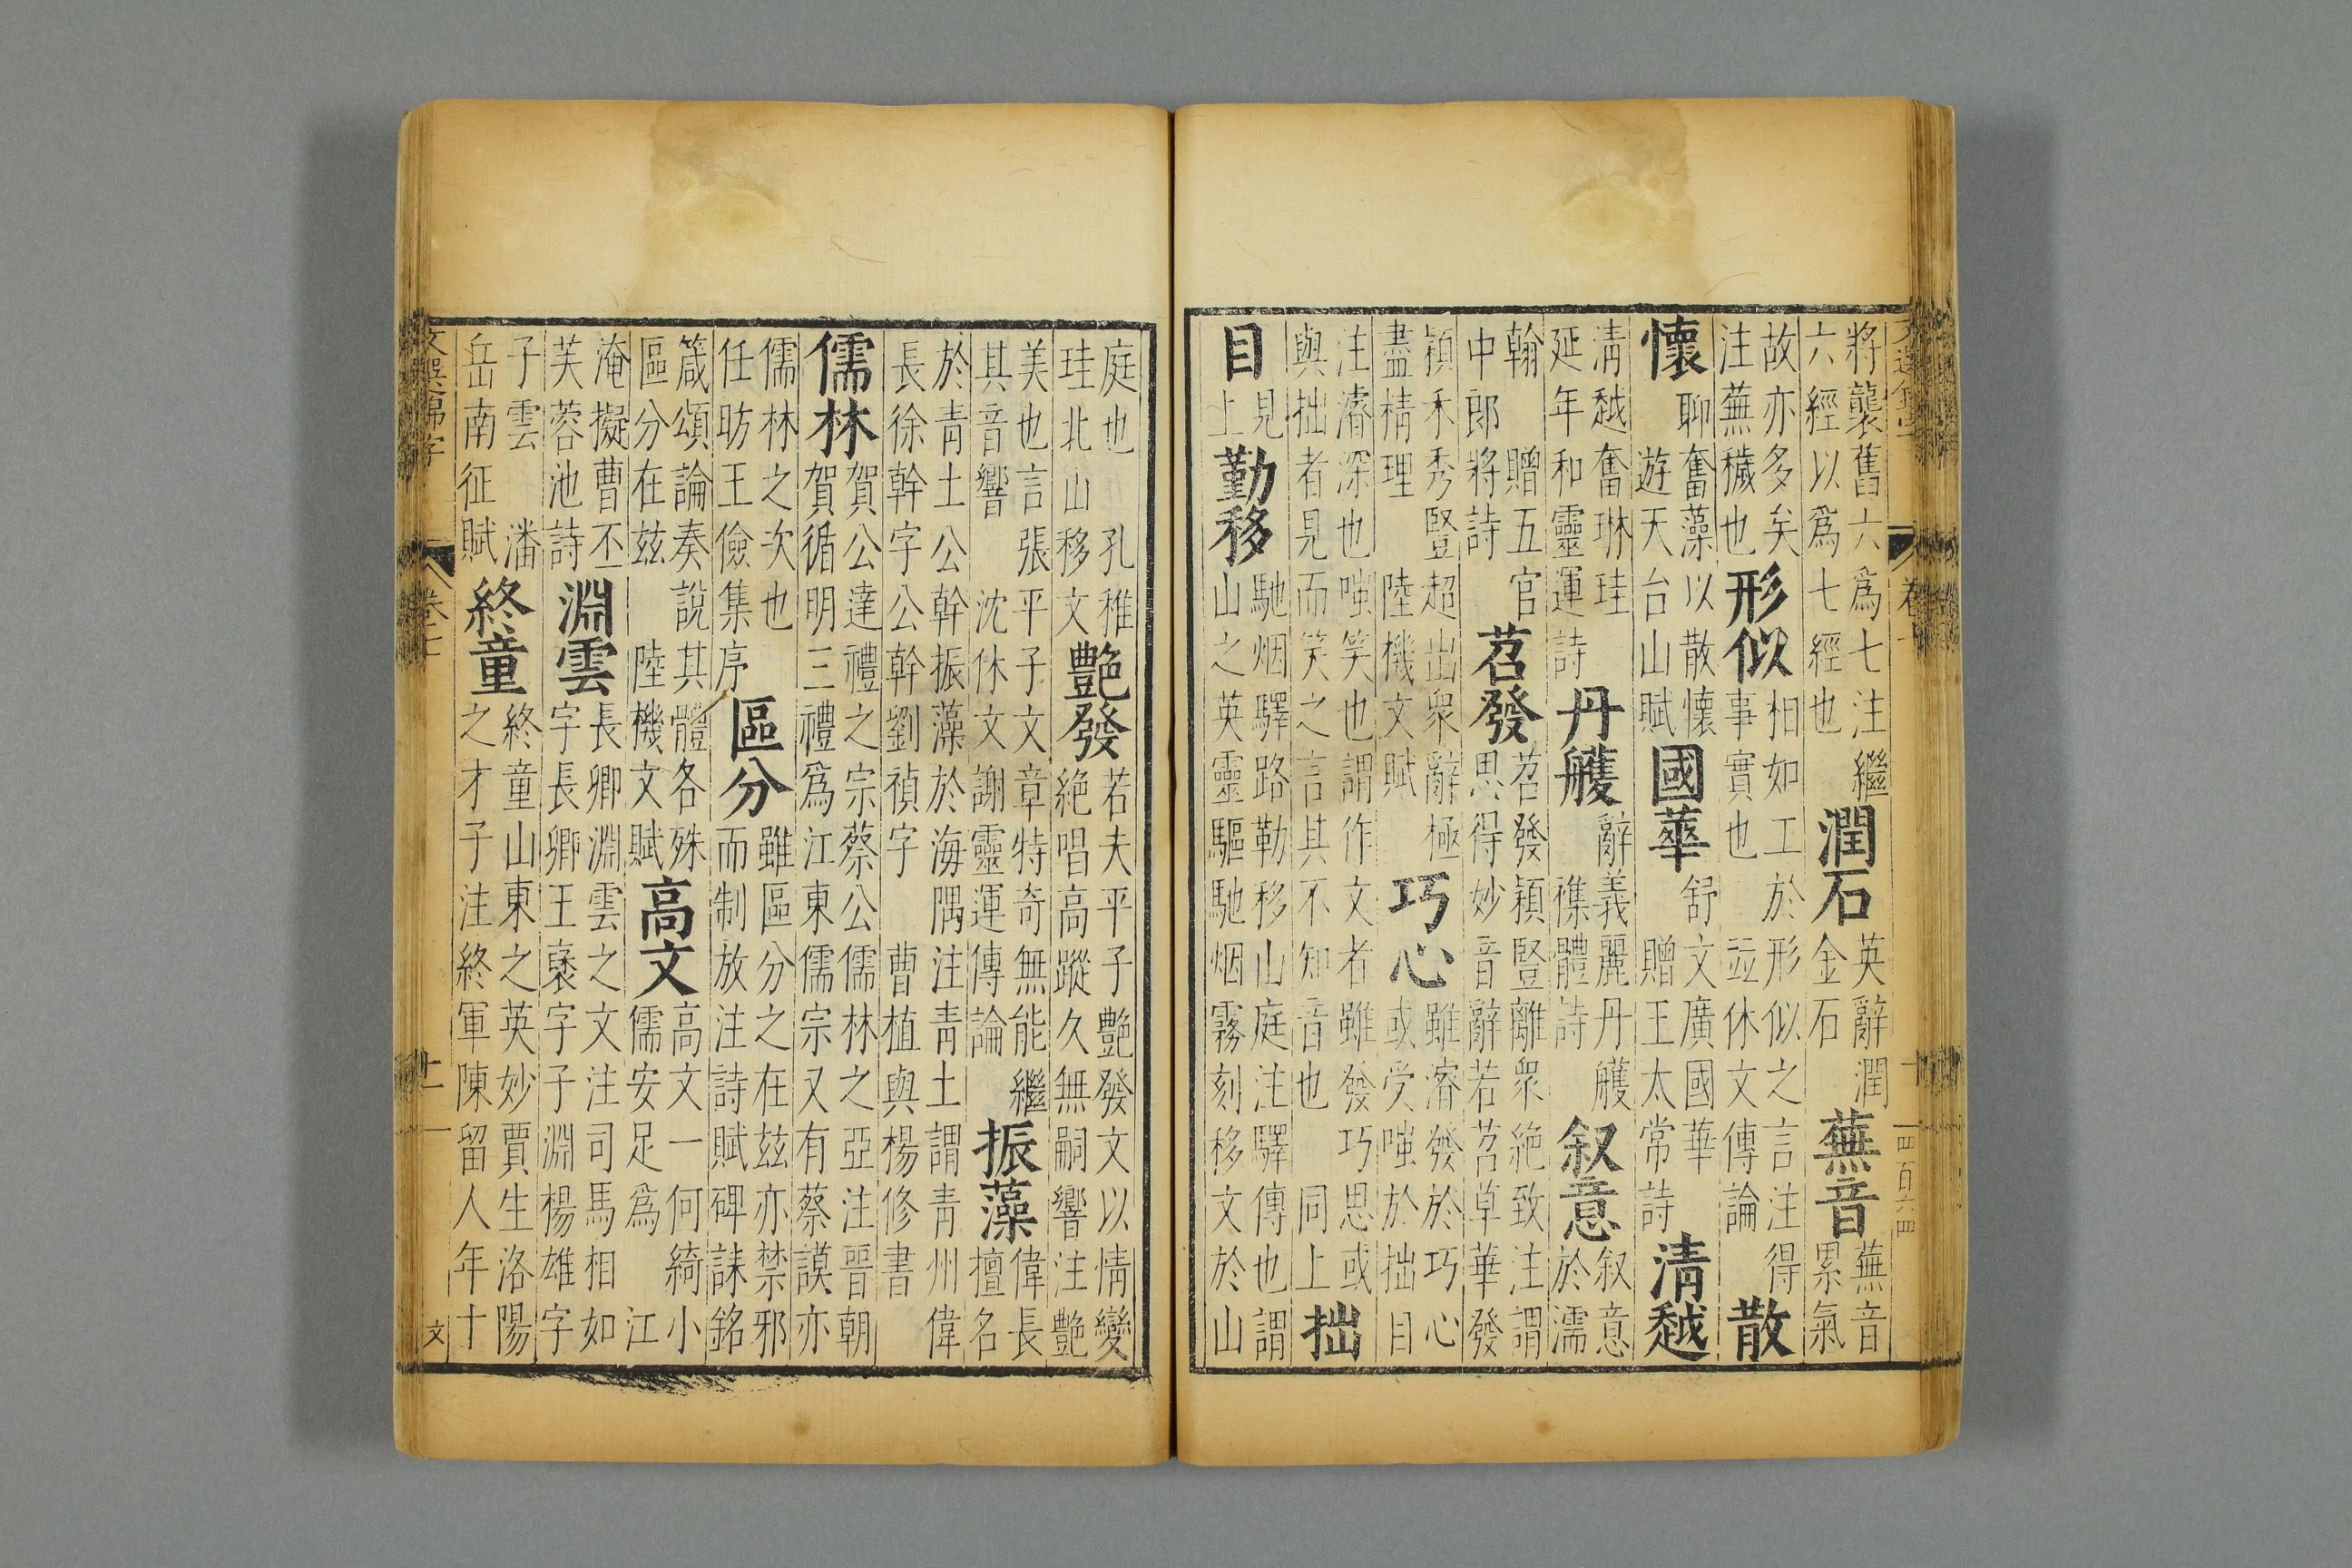 將襲舊六爲七注繼
六經以爲七經也
潤石
英辭潤
金石
蕪音
蕪音
累氣
故亦多矣
注蕪穢也
形似
相如工於形似之言注得
事實也 竝休文傳論
散
懷
聊奮藻以散懷
遊天台山賦
國華
舒文廣國華
贈王太常詩
清越
清越奮琳珪
延年和靈運詩
丹雘
辭義麗丹雘
襍體詩
叙意
叙意
於濡
翰 贈五官
中郎將詩
苕發
苕發穎豎離衆絶致注謂
思得妙音辭若苕草華發
穎禾秀豎超出衆辭極
盡精理 陸機文賦
巧心
雖濬發於巧心
或受嗤於拙目
注濬深也嗤笑也謂作文者雖發巧思或
與拙者見而笑之言其不知音也 同上
拙
目
見
上
勤移
馳烟驛路勒移山庭注驛傳也謂
山之英靈驅馳烟霧刻移文於山
庭也 孔稚
珪北山移文
艶發
若夫平子艶發文以情變
絶唱高蹤久無嗣響注艶
美也言張平子文章特奇無能繼
其音響 沈休文謝靈運傳論
振藻
偉長
擅名
於青土公幹振藻於海隅注青土謂青州偉
長徐幹字公幹劉禎字 曹植與楊修書
儒林
賀公達禮之宗蔡公儒林之亞注晋朝
賀循明三禮爲江東儒宗又有蔡謨亦
儒林之次也
任昉王儉集序
區分
雖區分之在玆亦禁邪
而制放注詩賦碑誄銘
箴頌論奏說其體各殊
區分在玆 陸機文賦
高文
高文一何綺小
儒安足爲 江
淹擬曹丕
芙蓉池詩
淵雲
長卿淵雲之文注司馬相如
字長卿王襃字子淵楊雄字
子雲 潘
岳南征賦
終童
終童山東之英妙賈生洛陽
之才子注終軍陳留人年十
卷七
十一
文